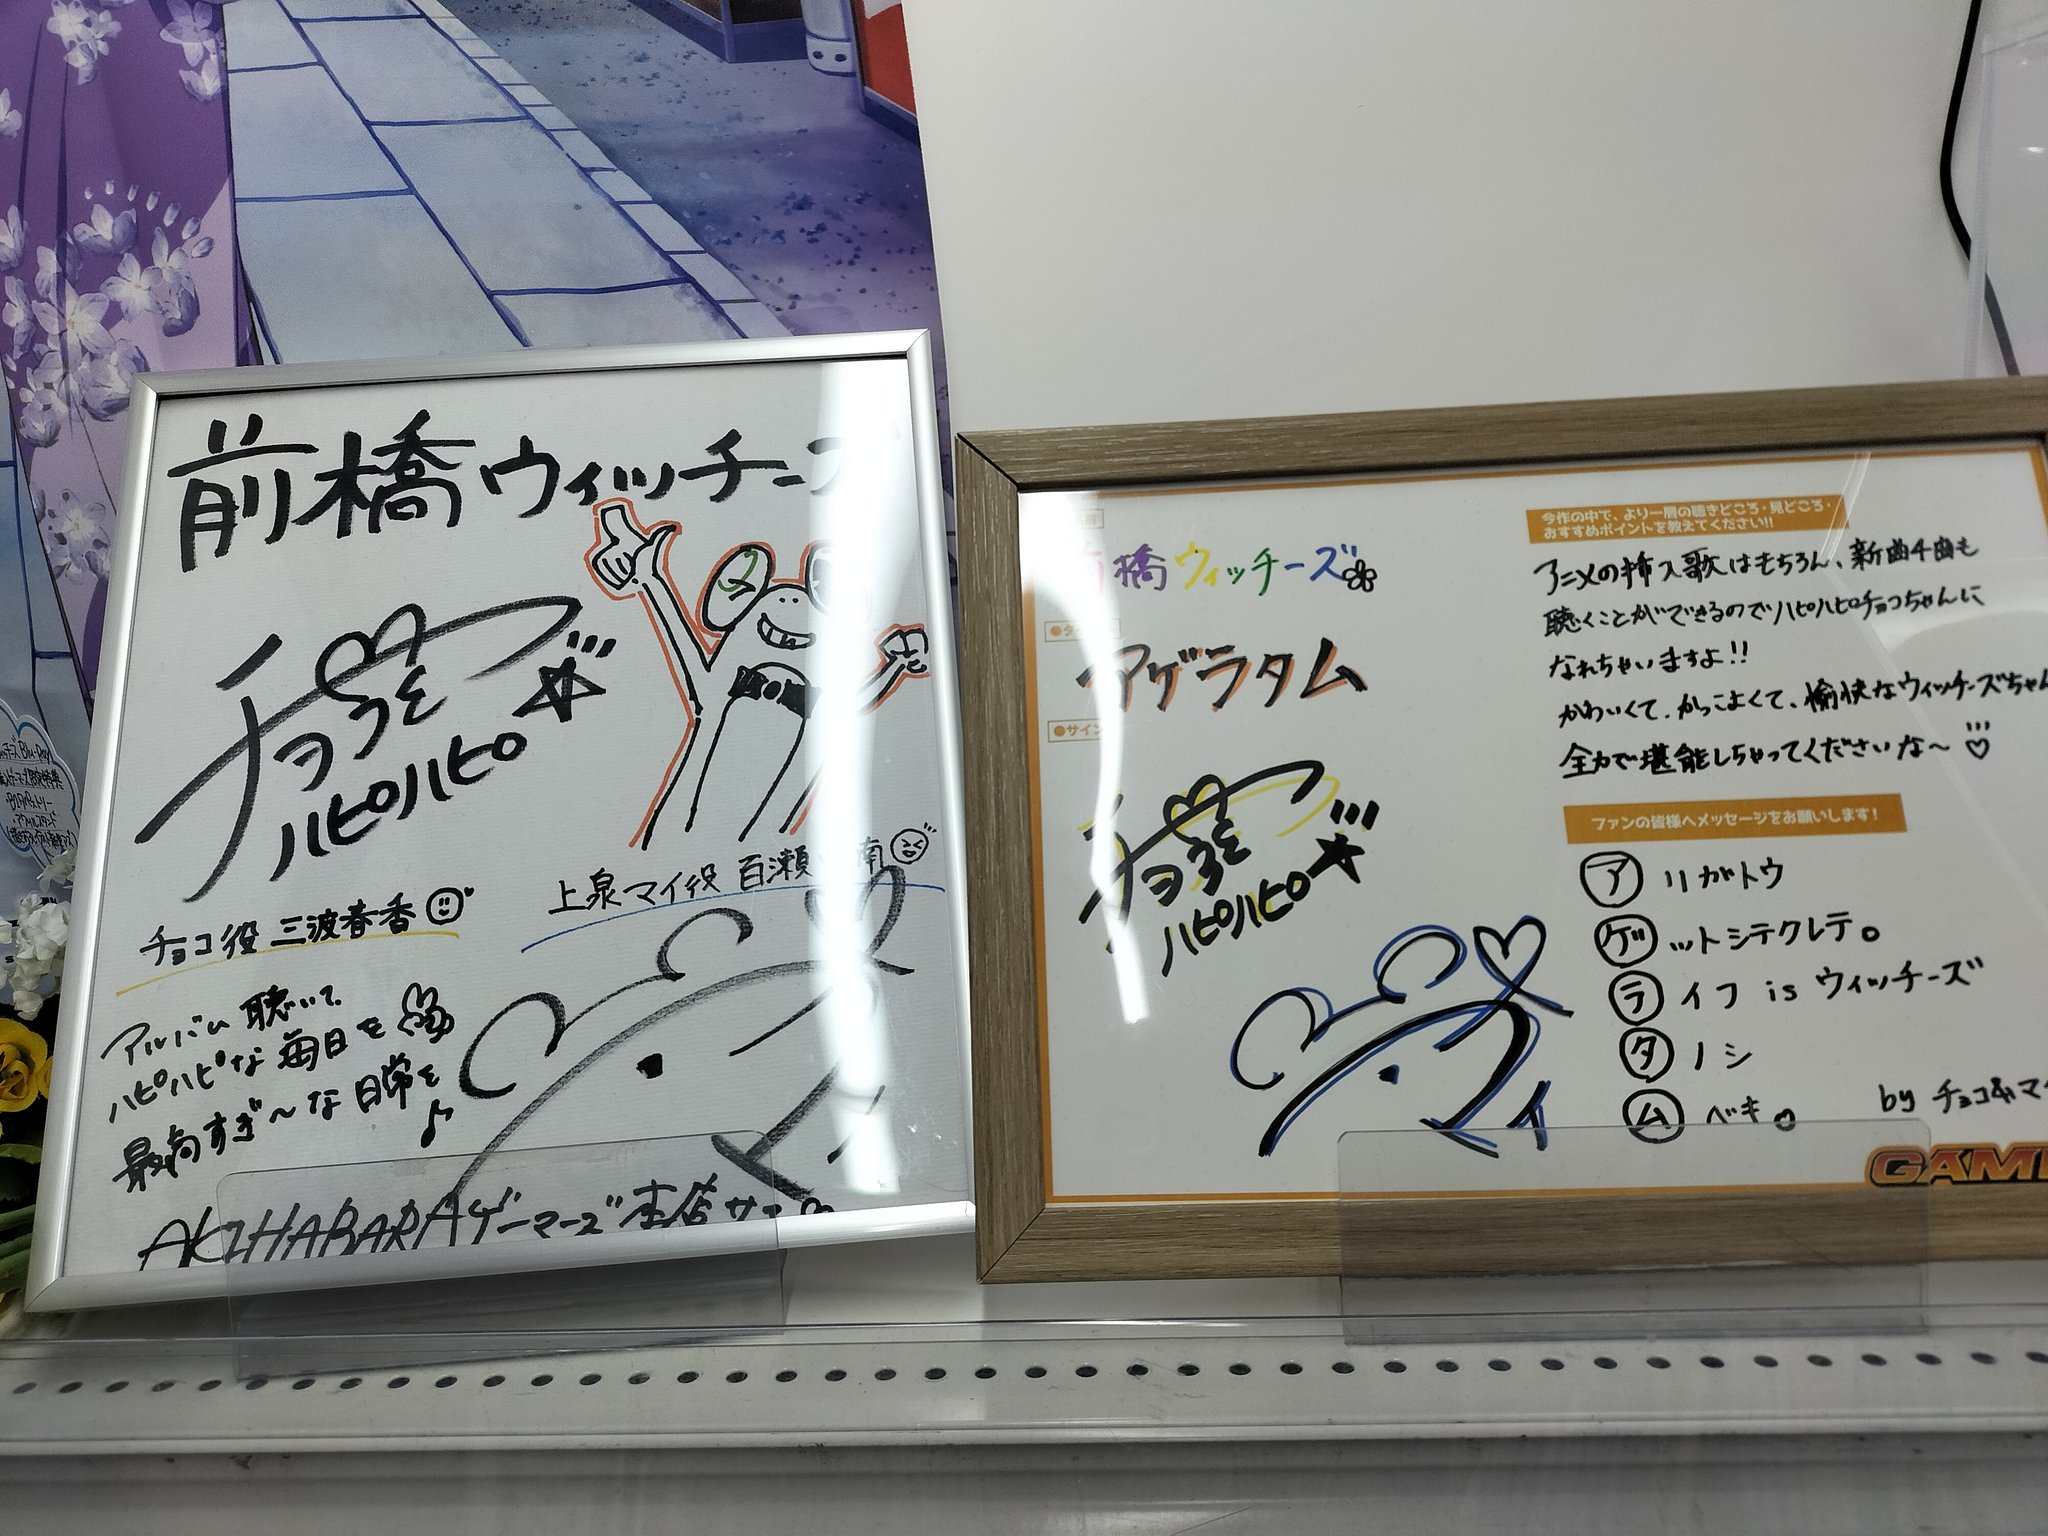 前橋ウィッチーズ
チョコ
ハピハピ
チョコ役 三波春香
上泉マイ役 百瀬 南
アルバム聴いて
ハピハピな毎日を
最高すぎ〜な日常を♪
マイ
AKIHABARAゲーマーズ本店サン
Blu-ray
前橋ウィッチーズ
●タ
アゲラタム
●サイン
チョコ
ハピハピ
マイ
今作の中で、より一層の聴きどころ・見どころ・
おすすめポイントを教えてください!!
アニメの挿入歌はもちろん、新曲4曲も
聴くことができるのでハピハピチョコちゃんに
なれちゃいますよ!!
かわいくて、かっこよくて、愉快なウィッチーズちゃん
全力で堪能しちゃってくださいな〜♡
ファンの皆様へメッセージをお願いします!
アリガトウ
ゲットシテクレテ。
ライフ is ウィッチーズ
タノシ
ムベキ。
by チョコ&マイ
GAM